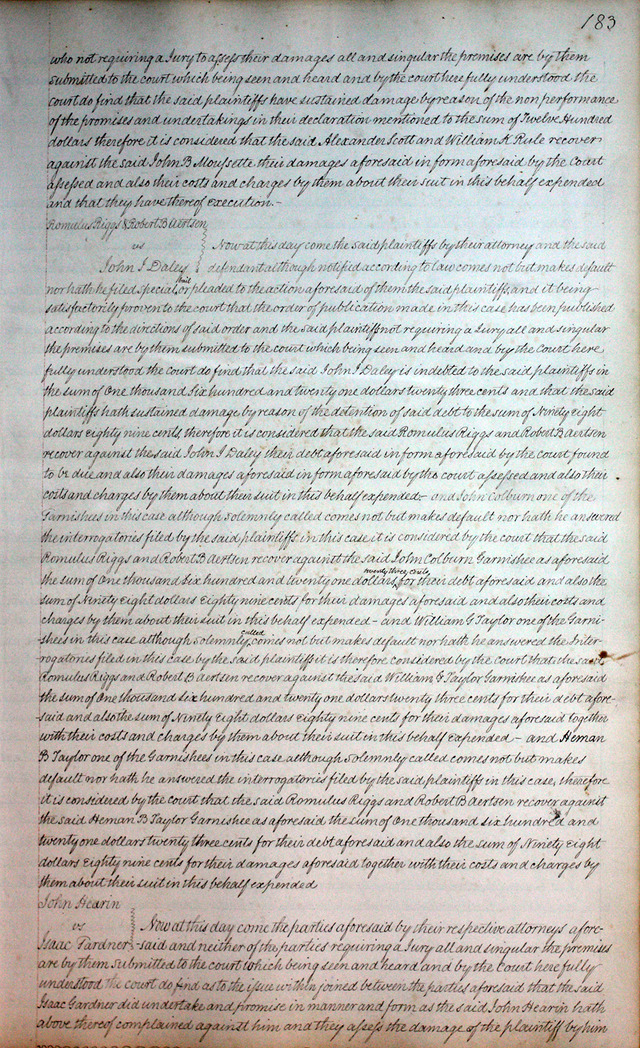 183
who not requiring a Jury to assess their damages all and singular the premises are by them
submitted to the court which being seen and heard and by the court here fully understood the
court do find that the said plaintiffs have sustained damage by reason of the non performance
of the promises and undertakings in their declaration mentioned to the sum of Twelve Hundred
dollars therefore it is considered that the said Alexander Scott and William K Rule recover
against the said John B Moussette their damages aforesaid in form aforesaid by the Court
assessed and also their costs and charges by them about their suit in this behalf expended
and that they have thereof execution.-
Romulus Riggs & Robert B Aertsen
vs Now at this day come the said plaintiffs by their attorney and the said
John I Daley defendant although notified according to law comes not but makes default
nor hath he filed special bail or pleaded to the action aforesaid of them the said plaintiffs, and it being
satisfactorily proven to the court that the order of publication made in this case has been published
according to the directions of said order and the said plaintiff not requiring a Jury all and singular
the premises are by them submitted to the court which being seen and heard and by the Court here
fully understood the court do find that the said John I Daley is indebted to the said plaintiffs in
the sum of One thousand Six hundred and twenty one dollars twenty three cents and that the said
plaintiffs hath sustained damage by reason of the detention of said debt to the sum of Ninety eight
dollars eighty nine cents, therefore it is considered that the said Romulus Riggs and Robert B Aertsen
recover against the said John I Daley their debt aforesaid in form aforesaid by the court found
to be due and also their damages aforesaid in form aforesaid by the court assessed and also their
costs and charges by them about their suit in this behalf expended- and John Colburn one of the
Garnishees in this case although solemnly called comes not but makes default nor hath he answered
the interrogatories filed by the said plaintiffs in this case it is considered by the court that the said
Romulus Riggs and Robert B Aertsen recover against the said John Colburn Garnishee as aforesaid
the sum of One thousand Six hundred and twenty one dollars twenty three cents for their debt aforesaid and also the
sum of Ninety Eight dollars Eighty nine cents for their damages aforesaid and also their costs and
charges by them about their suit in this behalf expended- and William G Taylor one of the Garni-
shees in this case although Solemnly called comes not but makes default nor hath he answered the Inter-
rogatories filed in this case by the said plaintiff it is therefore considered by the court that the said
Romulus Riggs and Robert B Aertsen recover against the said William G Taylor Garnishee as aforesaid
the sum of One thousand six hundred and twenty one dollars twenty three cents for their debt afore-
said and also the sum of Ninety Eight dollars Eighty nine cents for their damages aforesaid together
with their costs and charges by them about their suit in this behalf expended - and Heman
B Taylor one of the Garnishees in this case although solemnly called comes not but makes
default nor hath he answered the interrogatories filed by the said plaintiffs in this case, therefore
it is considered by the court that the said Romulus Riggs and Robert B Aertsen recover against
the said Heman B Taylor Garnishee as aforesaid the sum of One thousand six hundred and
twenty one dollars twenty three cents for their debt aforesaid and also the sum of Ninety Eight
dollars Eighty nine cents for their damages aforesaid together with their costs and charges by
them about their suit in this behalf expended
John Hearin
vs Now at this day come the parties aforesaid by their respective attorneys afore-
Isaac Gardner said and neither of the parties requiring a Jury all and singular the premises
are by them submitted to the court which being seen and heard and by the Court here fully
understood the court do find as to the issue within joined between the parties aforesaid that the said
Isaac Gardner did undertake and promise in manner and form as the said John Hearin hath
above thereof complained against him and they assess the damage of the plaintiff by him